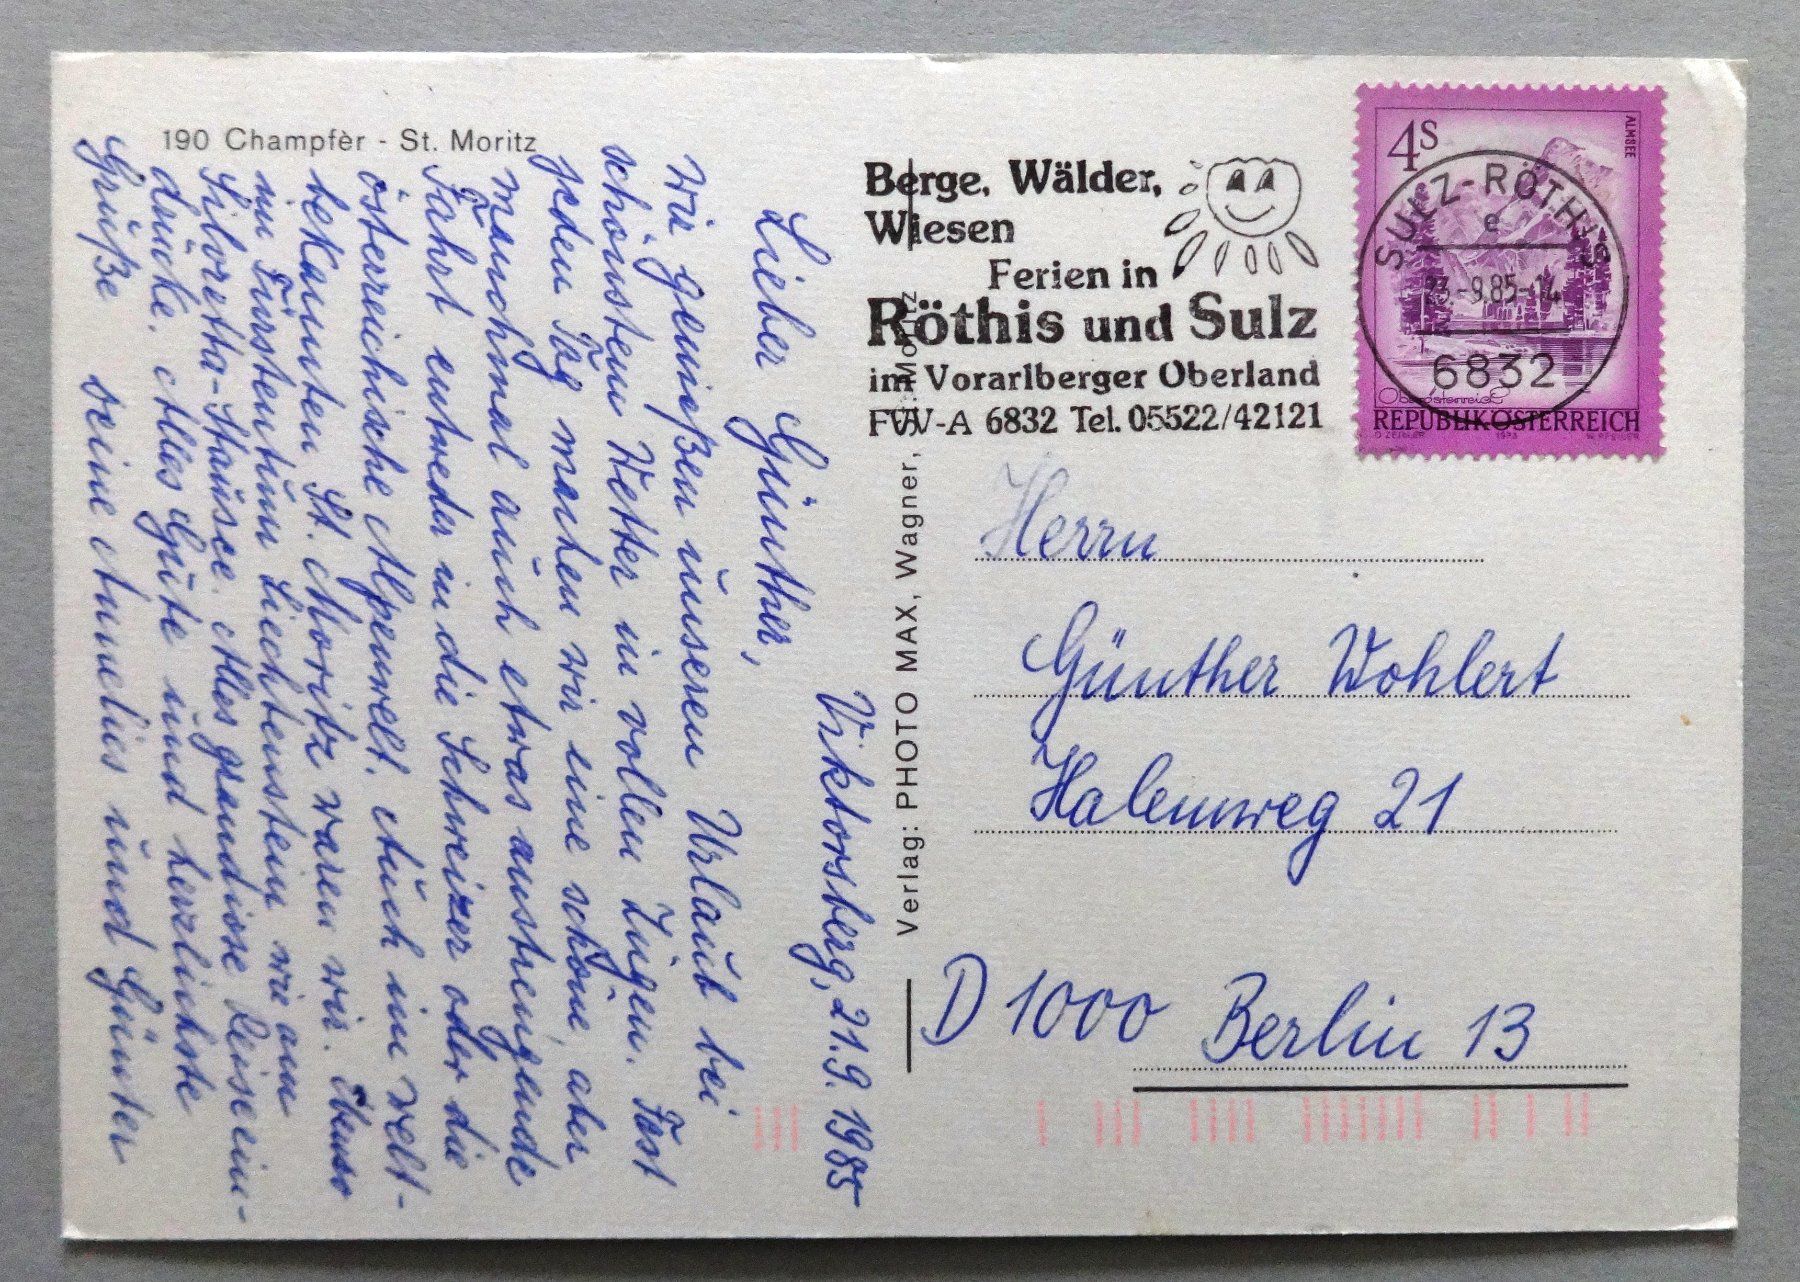 190 Champfèr - St. Moritz
Viktorsberg, 21.9.1985
Lieber Günther,
Wir genießen unseren Urlaub bei
schönstem Wetter in vollen Zügen. Fast
jeden Tag machen wir eine schöne, aber
manchmal auch etwas anstrengende
Fahrt entweder in die Schweizer oder die
österreichische Alpenwelt. Auch im welt-
bekannten St. Moritz waren wir. Ebenso
im Fürstentum Liechtenstein wie am
Silvretta-Stausee. Alles grandiose Reiseein-
drücke. Alles Gute und herzlichste
Grüße deine Annelies und Günter
Verlag: PHOTO MAX, Wagner, St. Moritz
Berge, Wälder,
Wiesen
Ferien in
Röthis und Sulz
im Vorarlberger Oberland
FVV-A 6832 Tel. 05522/42121
4S
ALMSEE
Oberösterreich
REPUBLIK ÖSTERREICH
O ZEILLER 1973 W. PFEILER
SULZ-RÖTHIS
e
23.-9.85-14
6832
Herrn
Günther Wohlert
Halemweg 21
D 1000 Berlin 13